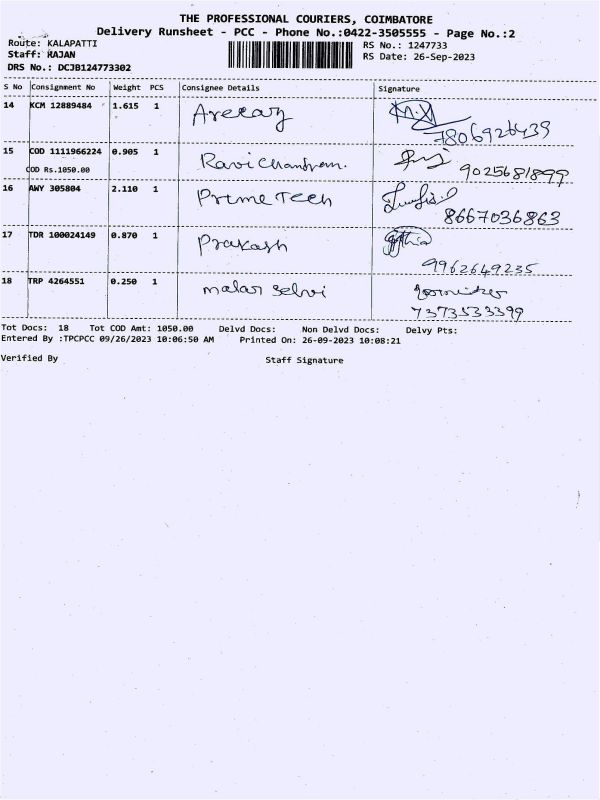 THE PROFESSIONAL COURIERS, COIMBATORE
Delivery Runsheet - PCC - Phone No.:0422-3505555 - Page No.:2
Route: KALAPATTI
RS No.: 1247733
Staff: RAJAN
RS Date: 26-Sep-2023
DRS No.: DCJB124773302
S No Consignment No Weight PCS Consignee Details Signature
14 KCM 12889484 1.615 1
7806926439
15 COD 1111966224 0.905 1 Ravichandran.
COD Rs.1050.00 9025681899
16 AWY 305804 2.110 1 Prime Tech
8667036863
17 TDR 100024149 0.870 1 Prakash
9962649235
18 TRP 4264551 0.250 1 malar selvi
7373533399
Tot Docs: 18 Tot COD Amt: 1050.00 Delvd Docs: Non Delvd Docs: Delvy Pts:
Entered By :TPCPCC 09/26/2023 10:06:50 AM Printed On: 26-09-2023 10:08:21
Verified By Staff Signature